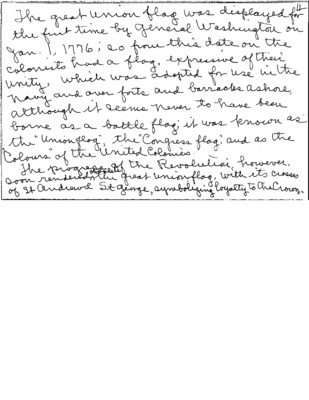 The great Union flag was displayed for
the first time by General Washington on
Jan. 1, 1776; so from this date on the
colonists had a flag, expressive of their
unity, which was adopted for use in the
navy and over forts and barracks ashore,
although it seems never to have been
borne as a battle flag; it was known as
the "Union flag", the "Congress flag", and as the
Colours" of the United Colonies
The progress of the Revolution, however,
soon rendered the great union flag, with its crosses
of St Andrew & St George, symbolizing loyalty to the Crown,